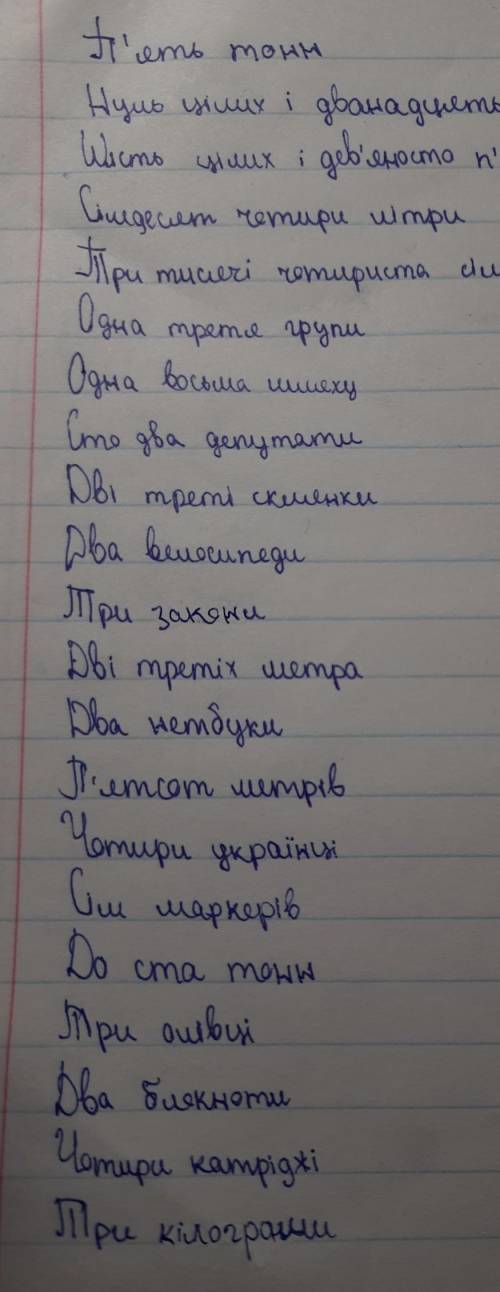 П'ять тонн
Нуль цілих і дванадцять
Шість цілих і дев'яносто п'
Сімдесят чотири літри
Три тисячі чотириста сім
Одна третя групи
Одна восьма шляху
Сто два депутати
Дві треті склянки
Два велосипеди
Три закони
Дві третіх метра
Два нетбуки
П'ятсот метрів
Чотири українці
Сім маркерів
До ста тонн
Три олівці
Два блякноти
Чотири катріджі
Три кілограми